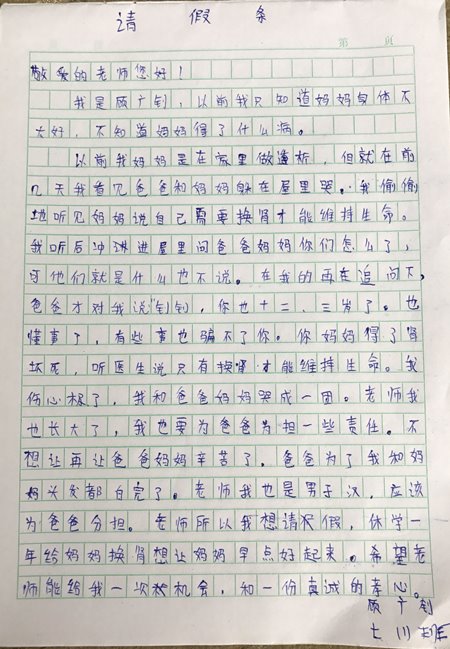 请 假 条
第 页
敬爱的老师您好！
我是顾广钊，以前我只知道妈妈身体不
大好，不知道妈妈得了什么病。
以前我妈妈是在家里做透析，但就在前
几天我看见爸爸和妈妈躲在屋里哭。我偷偷
地听见妈妈说自己需要换肾才能维持生命。
我听后冲进屋里问爸爸妈妈你们怎么了，
可他们就是什么也不说。在我的再在追问下，
爸爸才对我说"钊钊，你也十二、三岁了。也
懂事了，有些事也骗不了你。你妈妈得了肾
坏死，听医生说只有换肾才能维持生命。我
伤心极了，我和爸爸妈妈哭成一团。老师我
也长大了，我也要为爸爸担一些责任。不
想让再让爸爸妈妈辛苦了，爸爸为了我和妈
妈头发都白完了。老师我也是男子汉，应该
为爸爸分担。老师所以我想请长假，休学一
年给妈妈换肾想让妈妈早点好起来。希望老
师能给我一次机会，和一份真诚的孝心。
顾广钊
七 班